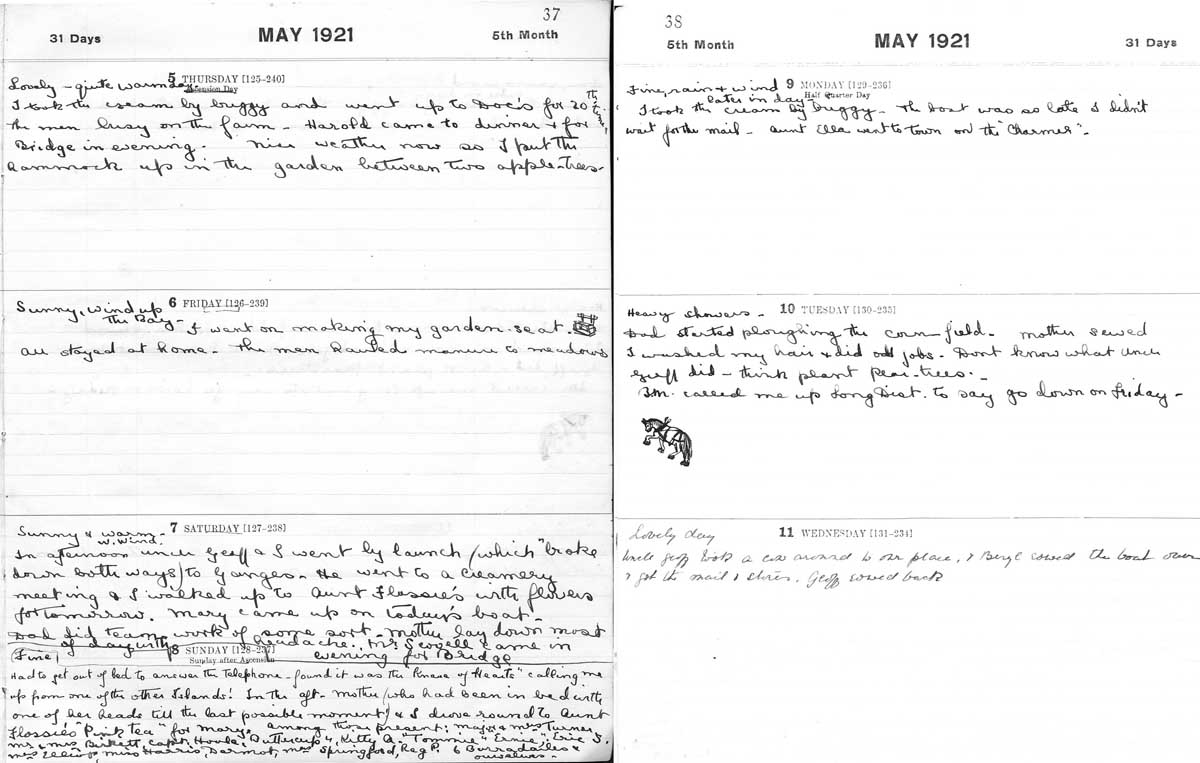 37
31 Days
MAY 1921
5th Month
5 THURSDAY [125-240]
Ascension Day
Lovely - quite warm
I took the cream by buggy and went up to Doc's for 20th
The men busy on the farm - Harold came to dinner & for
Bridge in evening. Nice weather now so I put the
hammock up in the garden between two apple-trees -
6 FRIDAY [126-239]
Sunny, wind up
the Bay -
I went on making my garden-seat.
All stayed at home - The men hauled manure to meadows
7 SATURDAY [127-238]
Sunny & warm -
W. Wind.
In afternoon Uncle Geoff & I went by launch (which "broke
down both ways) to Ganges - He went to a creamery
meeting & I walked up to Aunt Flossie's with flowers
for tomorrow. Mary came up on today's boat -
Dad did team work of some sort - Mother lay down most
of day with headache. Mr Scovell came in
evening for Bridge
8 SUNDAY [128-237]
Sunday after Ascension
Fine
Had to get out of bed to answer the telephone - found it was the "Knave of Hearts" calling me
up from one of the other Islands! In the aft- Mother (who had been in bed with
one of her heads till the last possible moment) & I drove round to Aunt
Flossie's "Pink Tea" for Mary, among those present: Major & Mrs Turner,
Mr & Mrs Birkett, Capt. "Buttercup", Kitty "Tommie" "Ernie", Eric S,
Mrs Elliot, Miss Harris, Dermot, Mr Springford, Reg P. 6 Borradailes &
ourselves -
38
5th Month
MAY 1921
31 Days
9 MONDAY [129-236]
Half Quarter Day
Fine, rain & wind
later in day -
I took the cream by buggy - The boat was so late I didn't
wait for the mail - Aunt Ella went to town on the "Charmer" -
10 TUESDAY [130-235]
Heavy showers -
Dad started ploughing the corn-field - Mother sewed
I washed my hair & did odd jobs - Don't know what Uncle
Geoff did - think plant pear-trees. -
called me up Long Dist. to say go down on Friday -
11 WEDNESDAY [131-234]
Lovely day
Uncle Geoff took a cow around to our place, & Beryl rowed the boat over
& got the mail & stores. Geoff rowed back